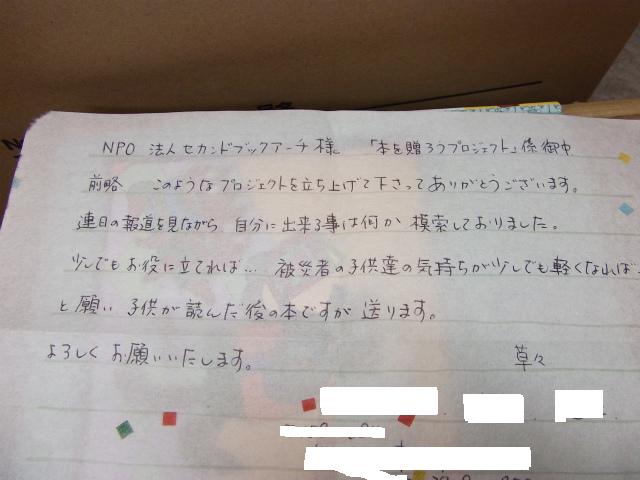 NPO 法人セカンドブックアーチ様 「本を贈ろうプロジェクト」係御中
前略 このようなプロジェクトを立ち上げて下さってありがとうございます。
連日の報道を見ながら 自分に出来る事は何か 模索しておりました。
少しでもお役に立てれば… 被災者の子供達の気持ちが少しでも軽くなれば…
と願い 子供が読んだ後の本ですが 送ります。
よろしくお願いいたします。 草々